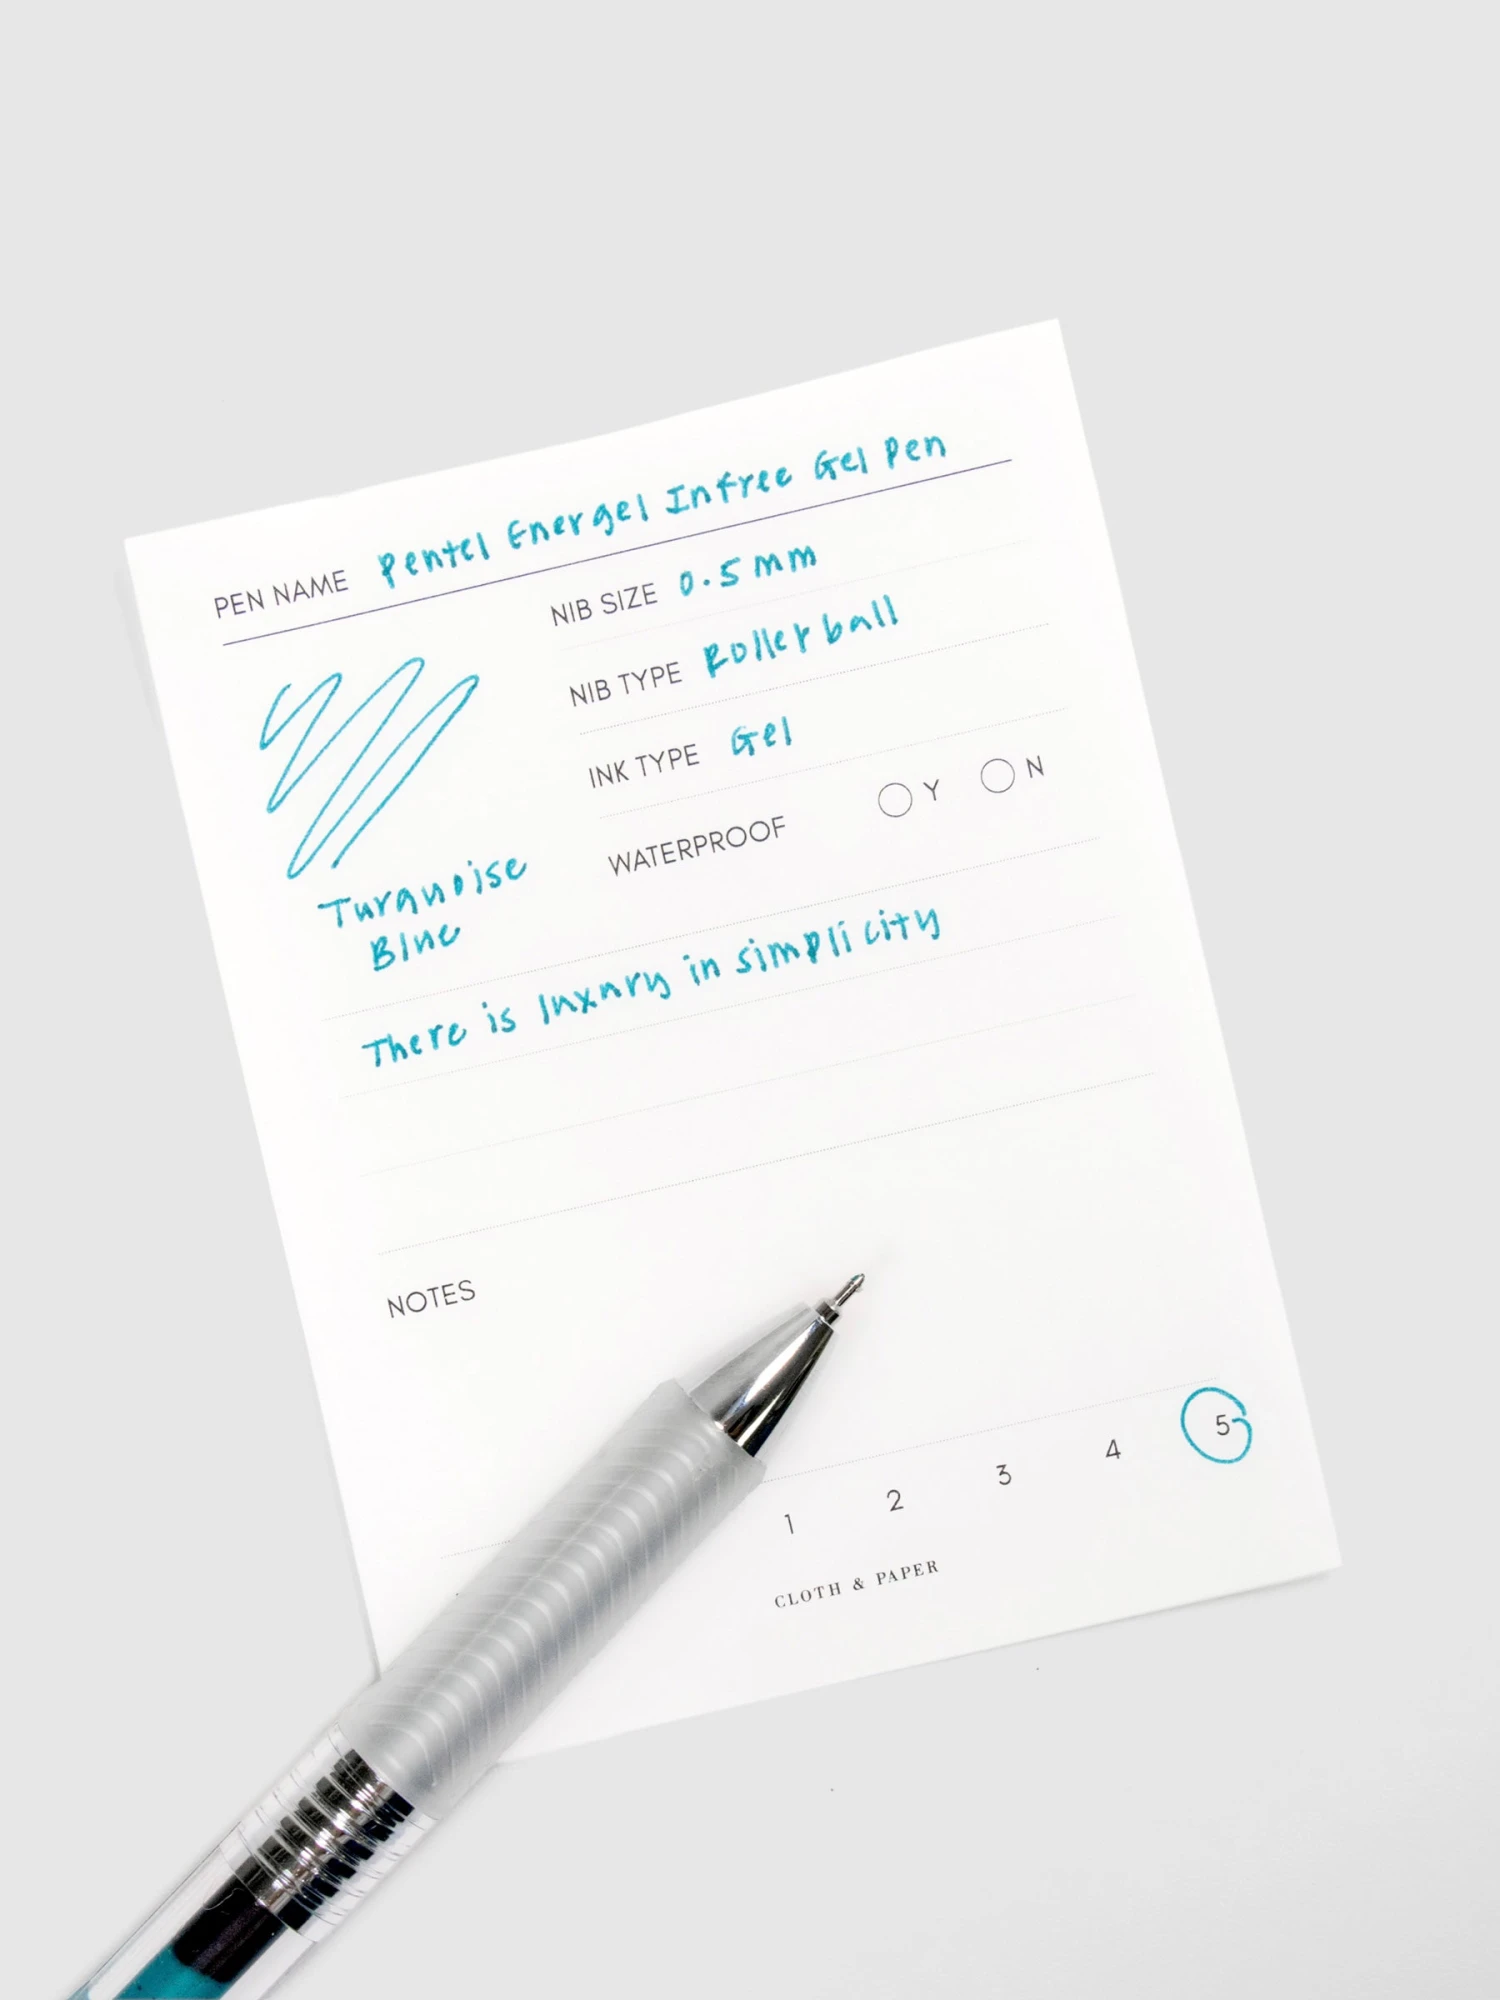 PEN NAME Pentel Energel Infree Gel Pen
NIB SIZE 0.5mm
NIB TYPE Rollerball
INK TYPE Gel
WATERPROOF Y N
Turquoise
Blue
There is luxury in simplicity
NOTES
1 2 3 4 5
CLOTH & PAPER